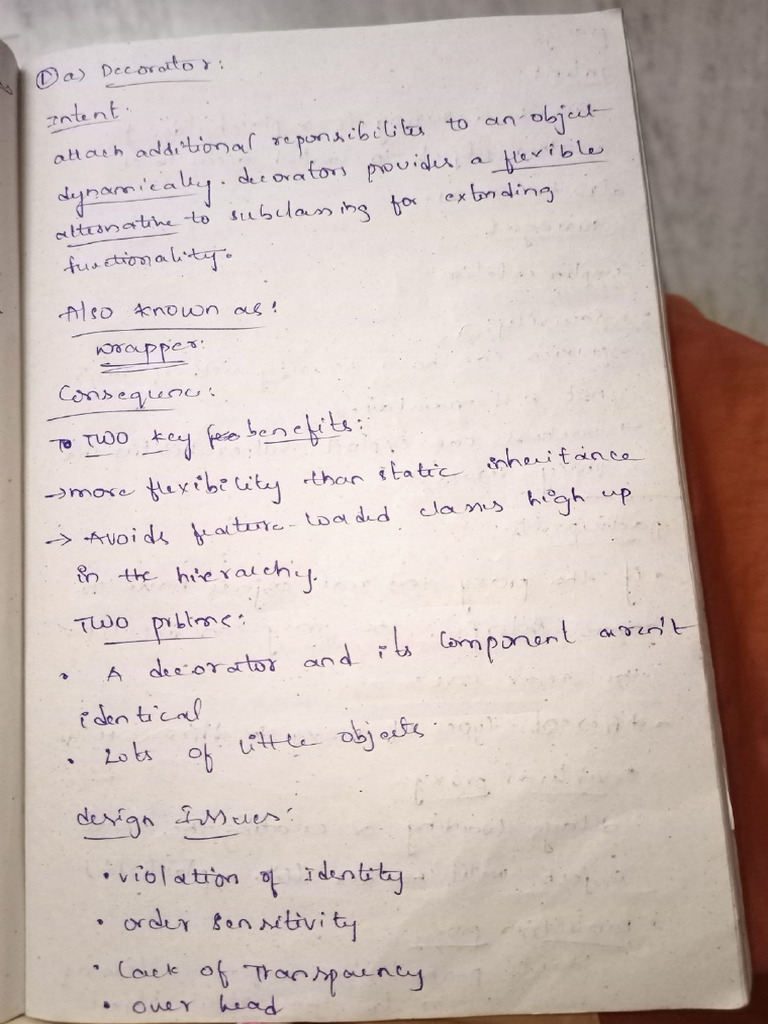 ① a) Decorator:
Intent.
attach additional reponsibilites to an object
dynamically. decorators provides a flexible
alternative to subclassing for extending
functionality.
Also known as:
wrapper:
Consequence:
TWO key benefits:
→ more flexibility than static inheritance
→ Avoids feature-loaded classes high up
in the hierarchy.
TWO prblms:
• A decorator and its component aren't
identical
• Lots of little objects.
design Issues:
• violation of identity
• order sensitivity
• Lack of Transpaency
• over head